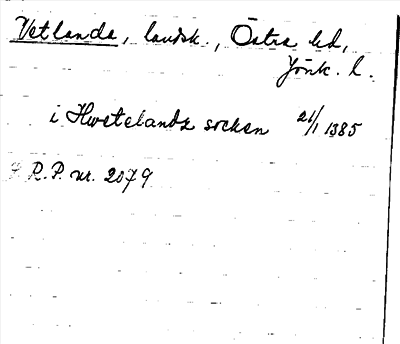 Vetlanda, landsk., Östra hd,
Jönk. l.
i Hwetelanda socken 21/1 1385
R.P. nr. 2079